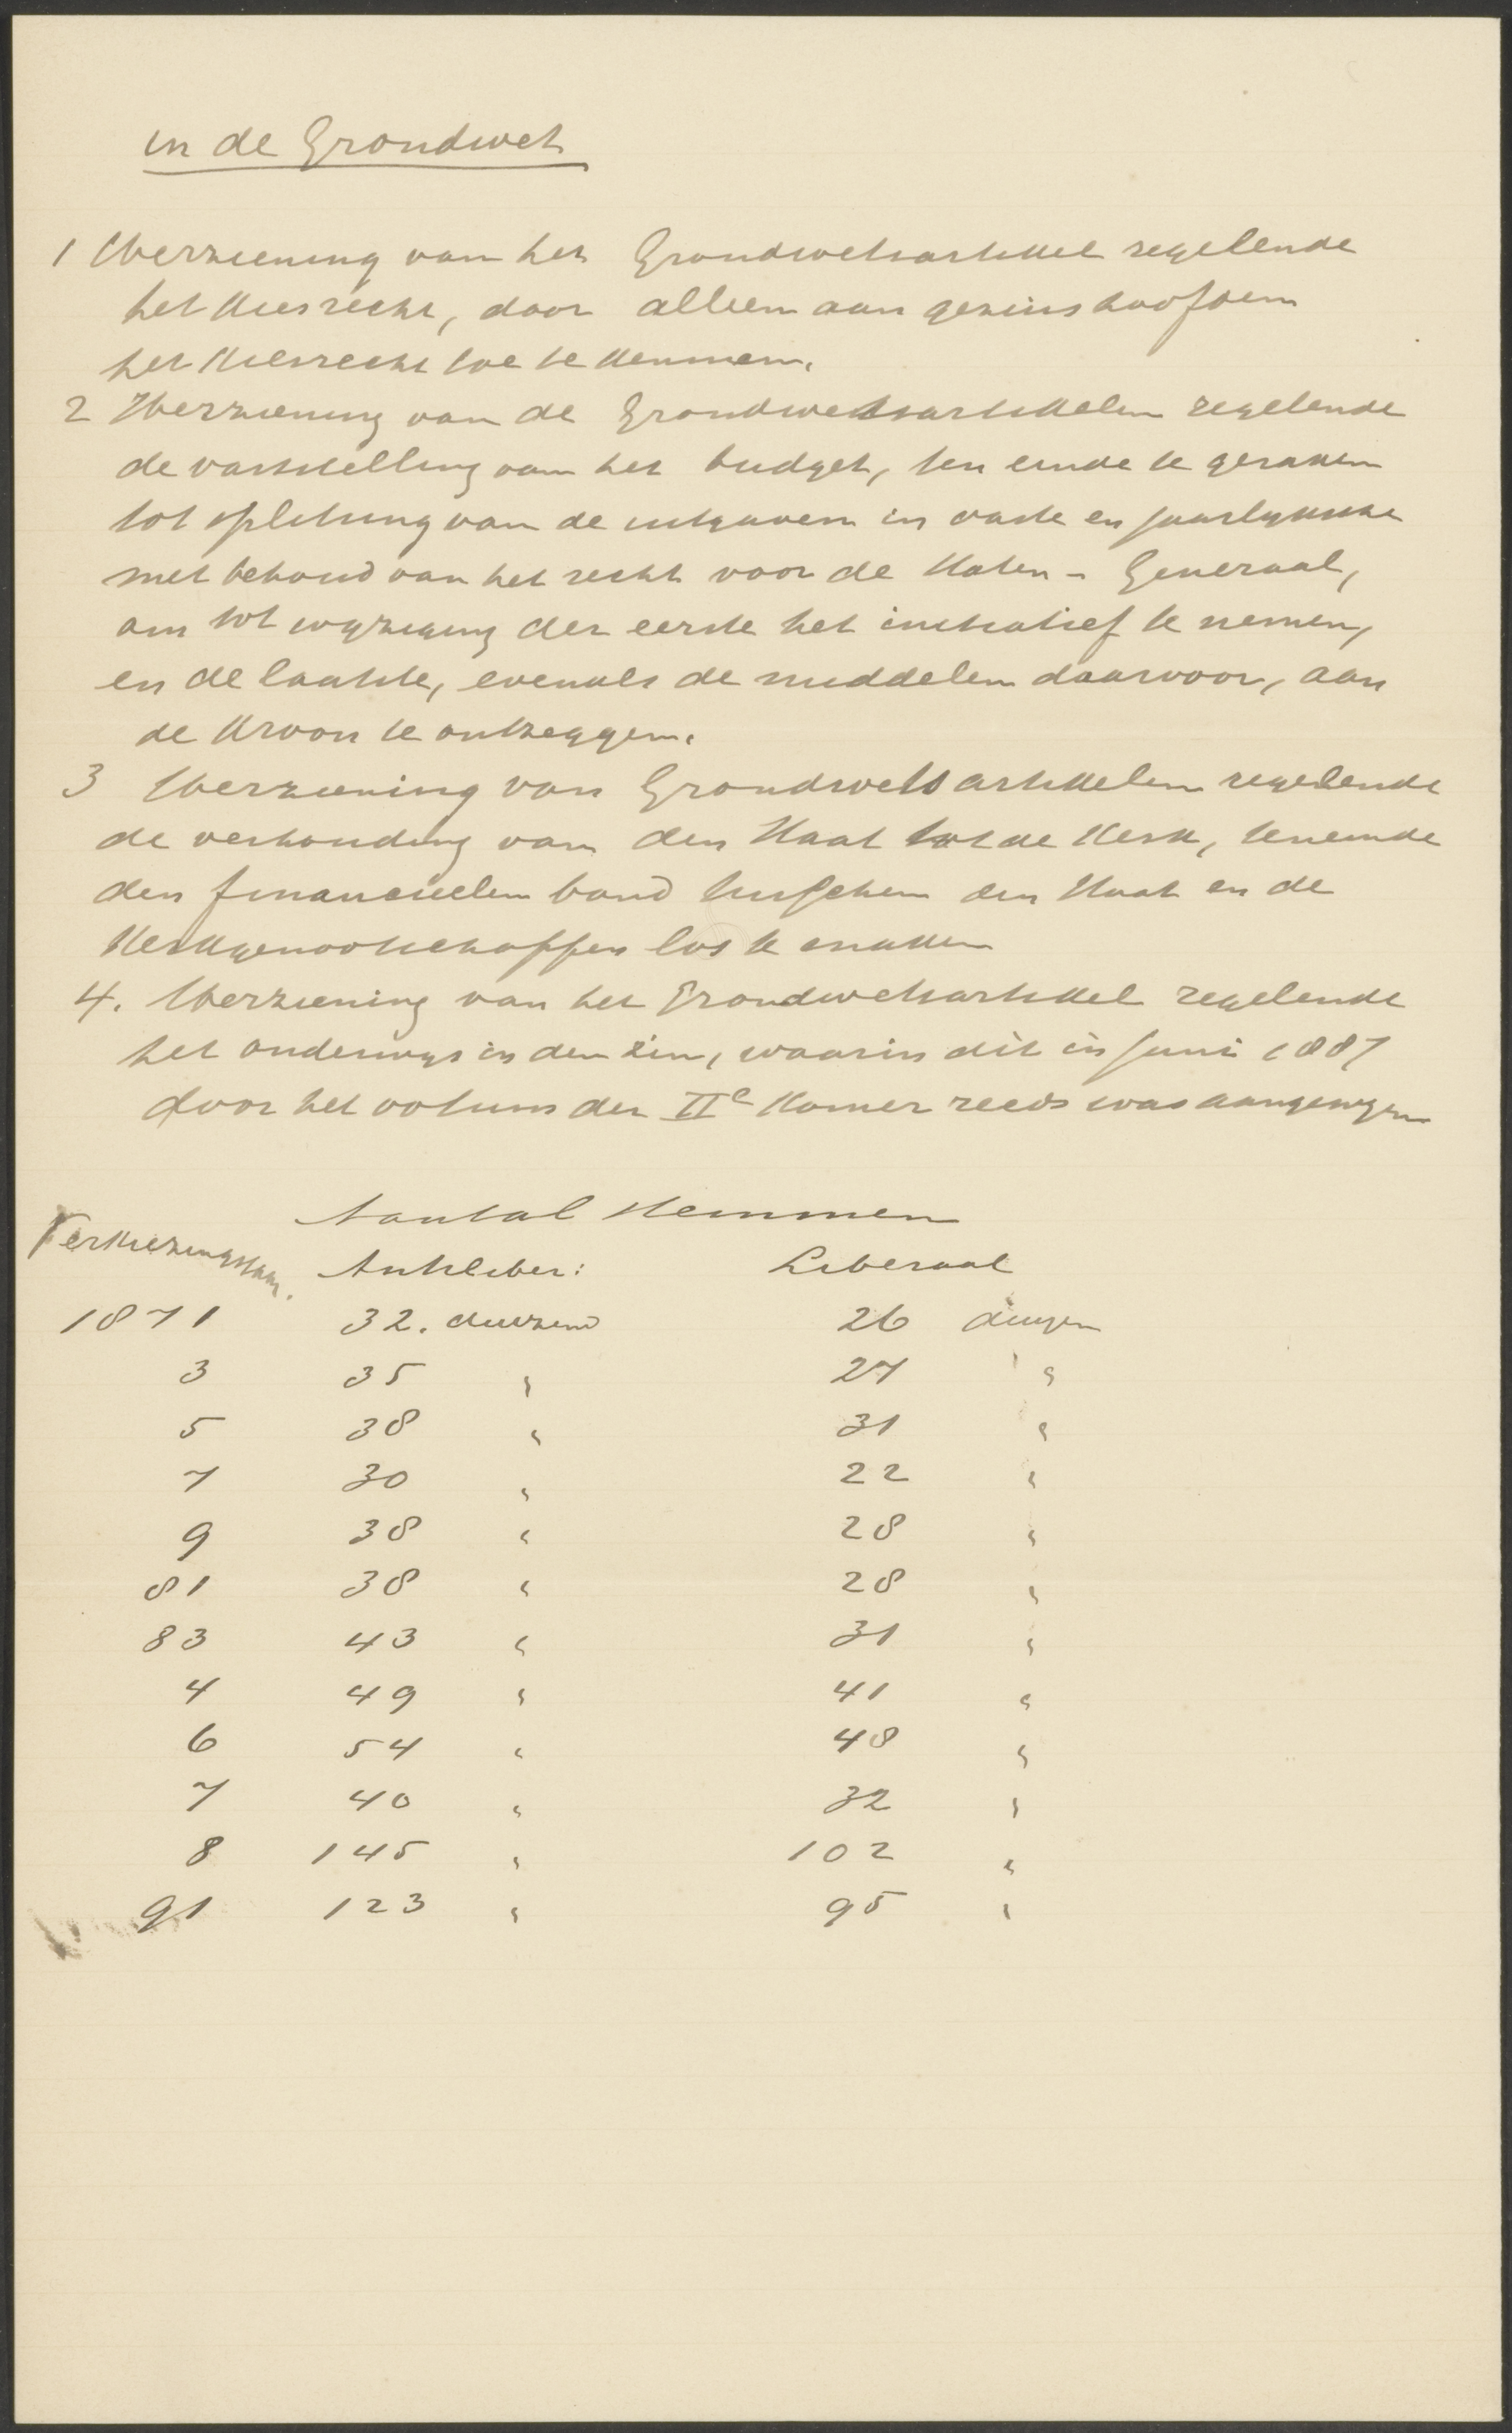 in de Grondwet
1 Herziening van het Grondwetsartikkel regelende
het kiesrecht, door alleen aan gezinshoofden
het kiesrecht toe te kennen.
2 Herziening van de Grondwetsartikkelen regelende
de vaststelling van het budget, ten einde te geraken
tot splitsing van de uitgaven in vaste en jaarlyksche
met behoud van het recht voor de Staten - Generaal,
om tot wyziging der eerste het initiatief te nemen,
en de laatste, evenals de middelen daarvoor, aan
de Kroon te ontzeggen.
3 Herziening van Grondwetsartikkelen regelende
de verhouding van den Staat tot de Kerk, teneinde
den financieelen band tusschen den Staat en de
Kerkgenootschappen los te maken
4. Herziening van het Grondwetsartikkel regelende
het onderwys in den zin, waarin dit in Juni 1887
door het votum der IIe Kamer reeds was aangewyzen
Aantal stemmen
Verkiezingsjaar. Antiliber: Liberaal
1871 32. duizend 26 duizen
3 35 " 27 "
5 38 " 31 "
7 30 " 22 "
9 38 " 28 "
81 38 " 28 "
83 43 " 31 "
4 49 " 41 "
6 54 " 48 "
7 40 " 32 "
8 145 " 102 "
91 123 " 95 "